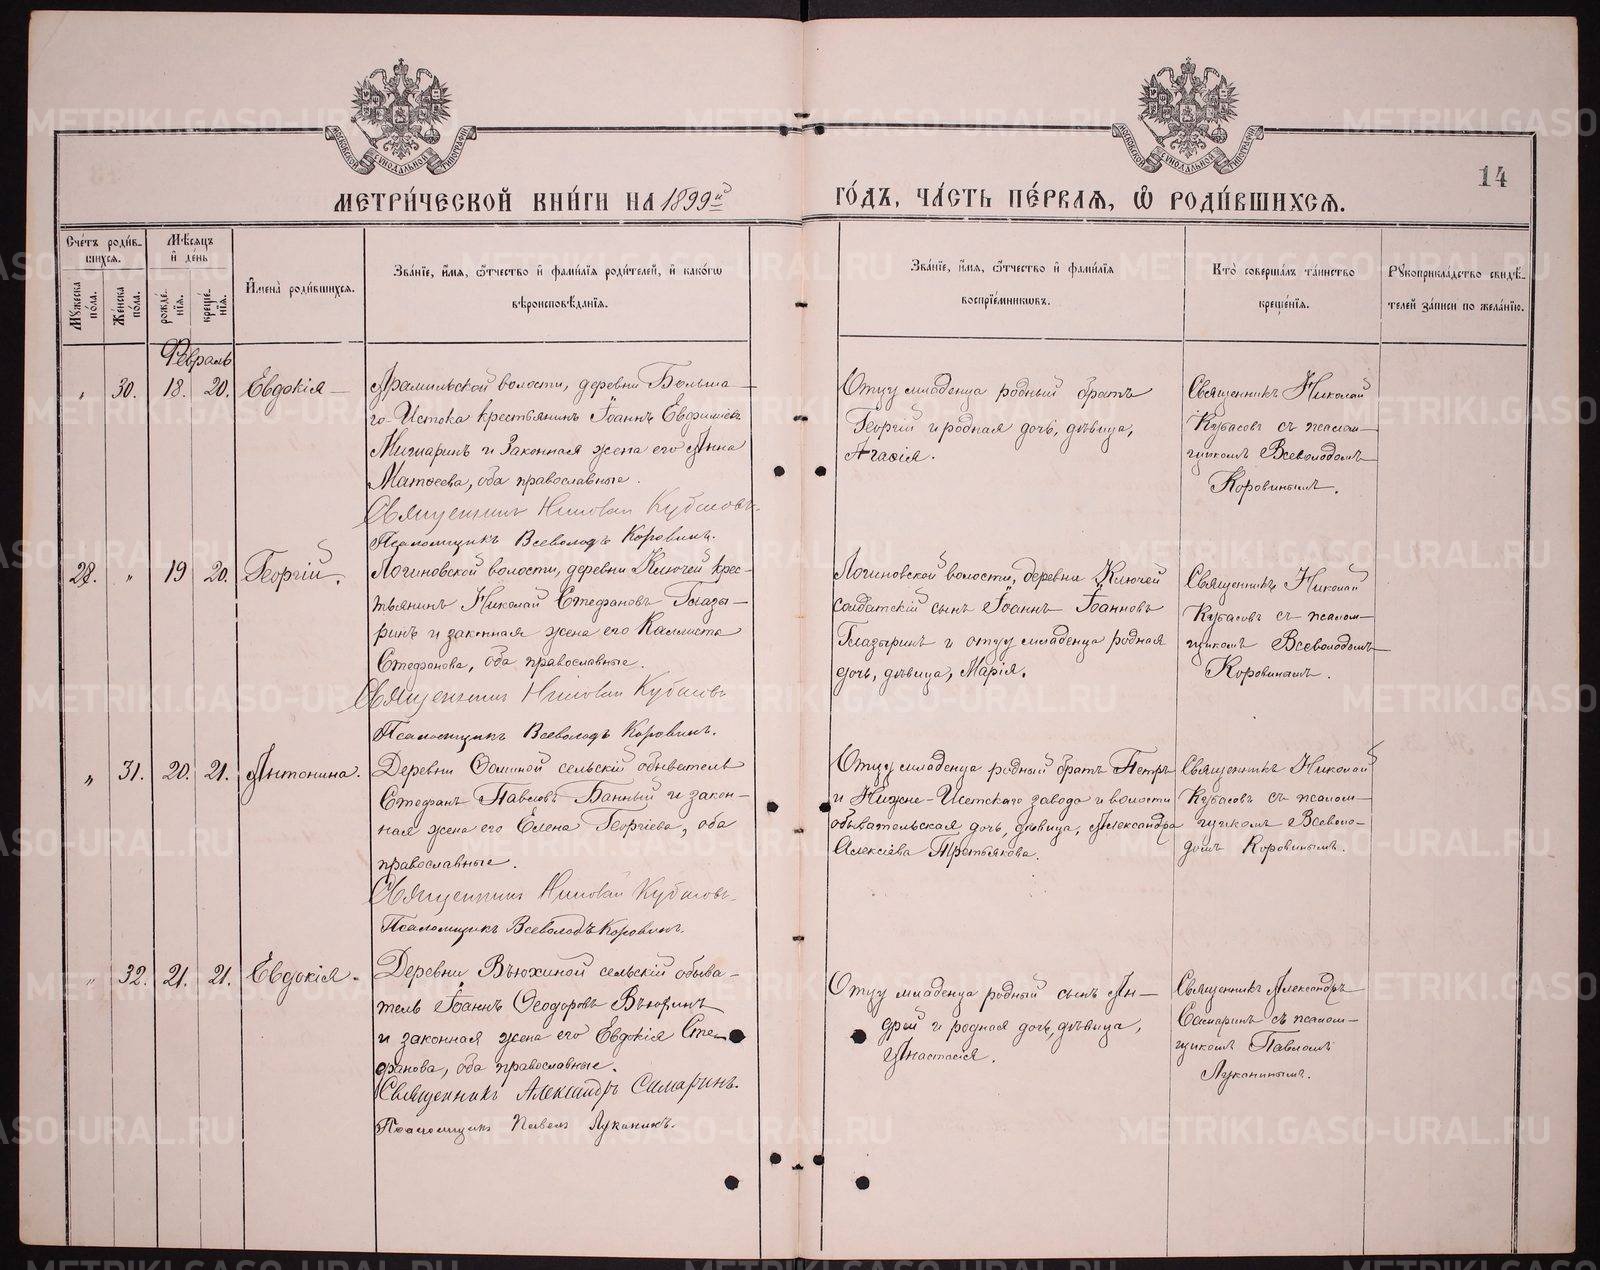 14
МЕТРИ́ЧЕСКОЙ КНИ́ГИ НА 1899й ГО́ДЪ, ЧА́СТЬ ПЕ́РВАѦ, Ѽ РОДИ́ВШИХСѦ.
Сче́тъ роди́в-
шихсѧ.
Му́жеска по́ла.
Же́нска по́ла.
Мѣ́сѧцъ
и҆ де́нь
рожде́-
нїѧ.
креще́-
нїѧ.
И҆мена̀ роди́вшихсѧ.
Зва́нїе, и҆́мѧ, ѻ҆́тчество и҆ фами́лїѧ роди́телей, и҆ како́гѡ
вѣроисповѣ́данїѧ.
Зва́нїе, и҆́мѧ, ѻ҆́тчество и҆ фами́лїѧ
воспрїе́мникѡвъ.
Кто̀ соверша́лъ та́инство
креще́нїѧ.
Рукоприкла́дство свидѣ́-
телей за́писи по жела́нїю.
Февраль
" 30. 18. 20. Евдокія
Арамильской волости, деревни Больша-
го-Истока крестьянинъ Іоаннъ Евфиміевъ
Мишаринъ и законная жена его Анна
Матѳеева, оба православные.
Священникъ Николай Кубасовъ.
Псаломщикъ Всеволодъ Коровинъ.
Отцу младенца родный братъ
Георгій и родная дочь, дѣвица,
Агаѳія.
Священникъ Николай
Кубасовъ съ псалом-
щикомъ Всеволодомъ
Коровинымъ.
28. " 19 20. Георгій.
Логиновской волости, деревни Ключей крес-
тьянинъ Николай Стефановъ Глазы-
ринъ и законная жена его Каллиста
Стефанова, оба православные.
Священникъ Николай Кубасовъ
Псаломщикъ Всеволодъ Коровинъ.
Логиновской волости, деревни Ключей
солдатскій сынъ Іоаннъ Іоанновъ
Глазыринъ и отцу младенца родная
дочь, дѣвица, Марія.
Священникъ Николай
Кубасовъ съ псалом-
щикомъ Всеволодомъ
Коровинымъ.
" 31. 20. 21. Антонина.
Деревни Фоминой сельскій обыватель
Стефанъ Павловъ Банный и закон-
ная жена его Елена Георгіева, оба
православные.
Священникъ Николай Кубасовъ.
Псаломщикъ Всеволодъ Коровинъ.
Отцу младенца родный братъ Петръ
и Нижне-Исетскаго завода и волости
обывательская дочь, дѣвица, Александра
Алексіева Третьякова.
Священникъ Николай
Кубасовъ съ псалом-
щикомъ Всеволо-
домъ Коровинымъ.
" 32. 21. 21. Евдокія.
Деревни Вьюхиной сельскій обыва-
тель Іоаннъ Ѳеодоровъ Вьюхинъ
и законная жена его Евдокія Сте-
фанова, оба православные.
Священникъ Александръ Самаринъ.
Псаломщикъ Павелъ Луканинъ.
Отцу младенца родный сынъ Ан-
дрей и родная дочь, дѣвица,
Анастасія.
Священникъ Александръ
Самаринъ съ псалом-
щикомъ Павломъ
Луканинымъ.
METRIKI.GASO-URAL.RU